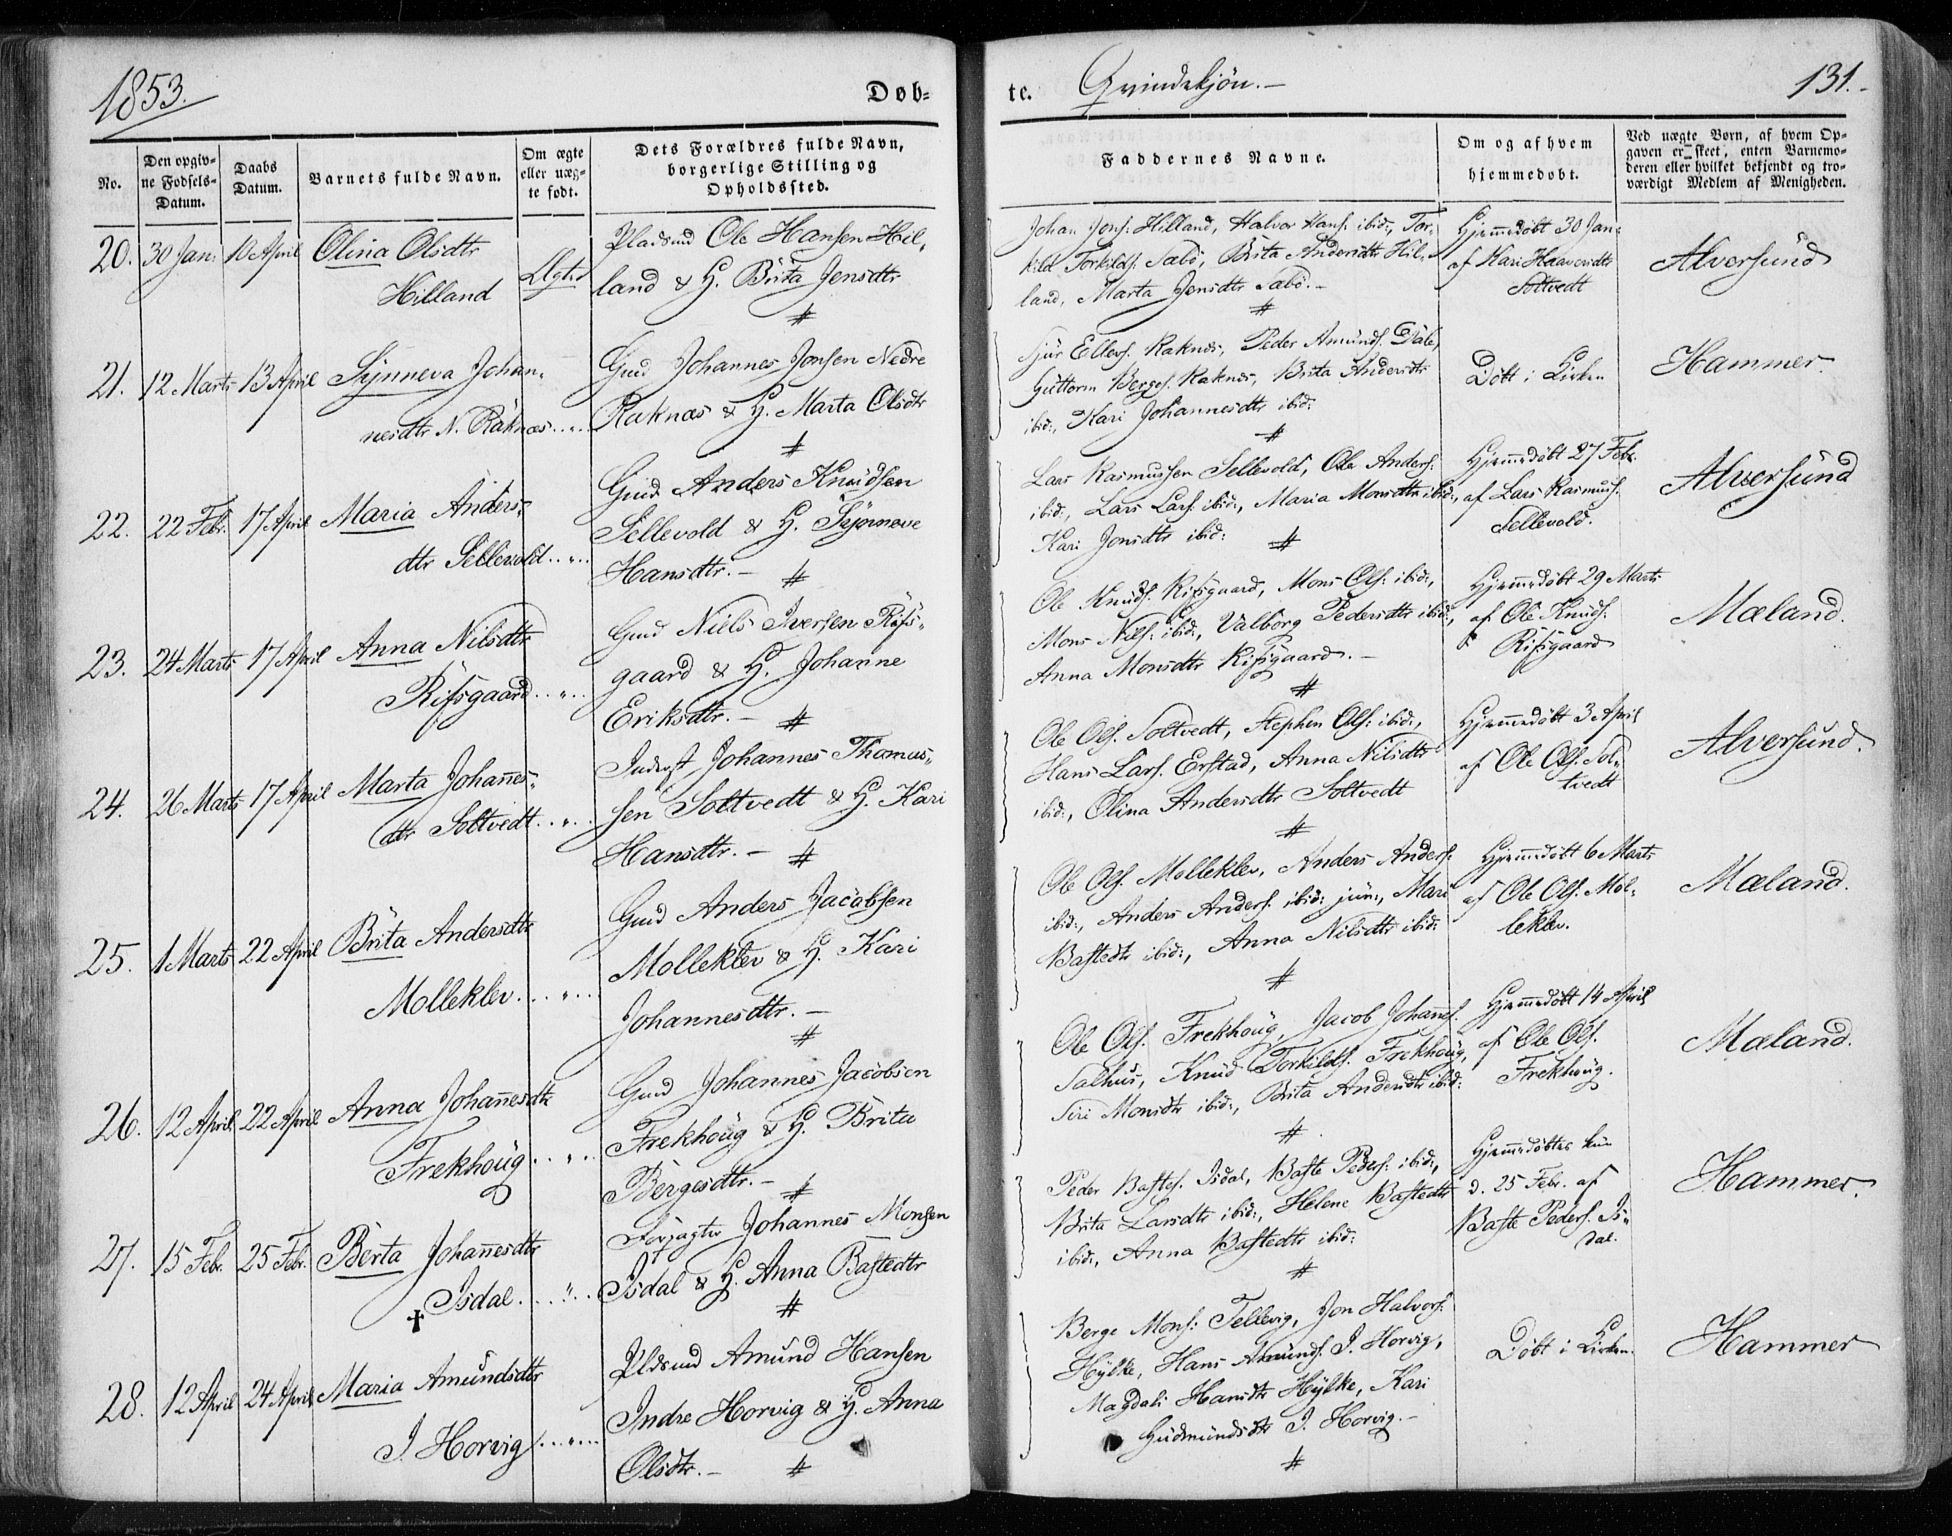 1853.
Døb=
te. Qvindekjön.-
131.-
No.
Den opgiv=
ne Fødsels=
Datum.
Daabs
Datum.
Barnets fulde Navn.
Om ægte
eller uæg=
te født.
Dets Forældres fulde Navn,
borgerlige Stilling og
Opholdssted.
Faddernes Navne.
Om og af hvem
hjemmedøbt.
Ved uægte Børn, af hvem Op=
gaven er skeet, enten Barnemo=
deren eller hvilket bekjendt og tro=
værdigt Medlem af Menigheden.
20. 30 Jan: 10 April Olina Olsdtr
Hilland
Pladsmd Ole Hansen Hil,
land & H. Brita Jensdtr
#
Johan Jons: Hilland, Halvor Hans: ibid:, Tor,
kild Torkilds: Sæbö, Brita Andersdtr Hil,
land, Marta Jensdtr Sæbö.-
#
Hjemmedöbt 30 Jan:
af Kari Haaversdtr
Soltvedt
Alversund
21. 12 Marts 13 April Synneva Johan,
nesdtr N. Raknæs..„..
Gmd Johannes Jonsen Nedre
Raknæs & H. Marta Olsdtr
#
Sjur Ellevs. Raknæs, Peder Amunds. Dale,
Guttorm Berges. Raknæs, Brita Andersdtr
ibid:, Kari Johannesdtr ibid:
#
Döbt i Kirken
Hammer.
22. 22 Febr. 17 April Maria Anders,
dtr Sellevold..„..
Gmd Anders Knudsen
Sellevold & H. Synneve
Hansdtr.- #
Lars Rasmussen Sellevold, Ole Anders:
ibid:, Lars Lars: ibid:, Maria Monsdtr ibid:,
Kari Jonsdtr ibid: #
Hjemmedöbt 27 Febr.
af Lars Rasmus:
Sellevold.
Alversund
23. 24 Marts 17 April Anna Nilsdtr
Rifsgaard..„..
Gmd Niels Iversen Rifs,
gaard & H. Johanne
Eriksdtr.- #
Ole Knuds. Rifsgaard, Mons Ols: ibid:,
Mons Nils: ibid:, Valborg Pedersdtr ibid:,
Anna Monsdtr Rifsgaard.-
#
Hjemmedöbt 29 Marts
af Ole Knuds:
Rifsgaard
Mæland.
24. 26 Marts 17 April Marta Johannes,
dtr Soltvedt..„..
Inderst Johannes Thomas,
sen Soltvedt & H. Kari
Hansdtr.- #
Ole Ols. Soltvedt, Stephen Ols: ibid:,
Hans Lars. Erstad, Anna Nilsdtr
ibid:, Olina Andersdtr Soltvedt
#
Hjemmedöbt 3 April
af Ole Ols. Sol,
tvedt
Alversund.
25. 1 Marts 22 April Brita Andersdtr
Molleklev...„..
Gmd Anders Jacobsen
Molleklev & H. Kari
Johannesdtr.-
#
Ole Ols. Molleklev, Anders Anders:
ibid:, Anders Anders: ibid: jun:, Mari
Bastedtr ibid:, Anna Nilsdtr ibid:
#
Hjemmedöbt 6 Marts
af Ole Ols. Mol,
leklev.
Mæland.
26. 12 April 22 April Anna Johannesdtr
Frekhoug..„..
Gmd Johannes Jacobsen
Frekhoug & H. Brita
Bergesdtr.- #
Ole Ols. Frekhoug, Jacob Johans.
Salhus, Knud Torkilds. Frekhoug,
Siri Monsdtr ibid:, Brita Andersdtr ibid:
#
Hjemmedöbt 14 April
af Ole Ols.
Frekhoug.
Mæland.
27. 15 Febr. 25 Febr. Berta Johannesdtr
† Isdal....„..
Johannes Monsen
Isdal & H. Anna Bastedtr
#
Peder Bastes. Isdal, Baste Peders: ibid:,
Brita Larsdtr ibid:, Helene Bastedtr
ibid:, Anna Bastedtr ibid:
#
Hjemmedöbtes kun
d. 25 Febr. af
Baste Peders. Is,
dal.
Hammer.
28. 12 April 24 April Maria Amundsdtr
I. Horvig...„...
Pladsmd Amund Hansen
Indre Horvig & H. Anna
Olsdtr.- #
Berge Mons: Tellevig, Jon Halvors:
Hylke, Hans Amunds. I. Horvig,
Magdali Hansdtr Hylke, Kari
Gudmundsdtr I. Horvig.-
#
Döbt i Kirken.
Hammer